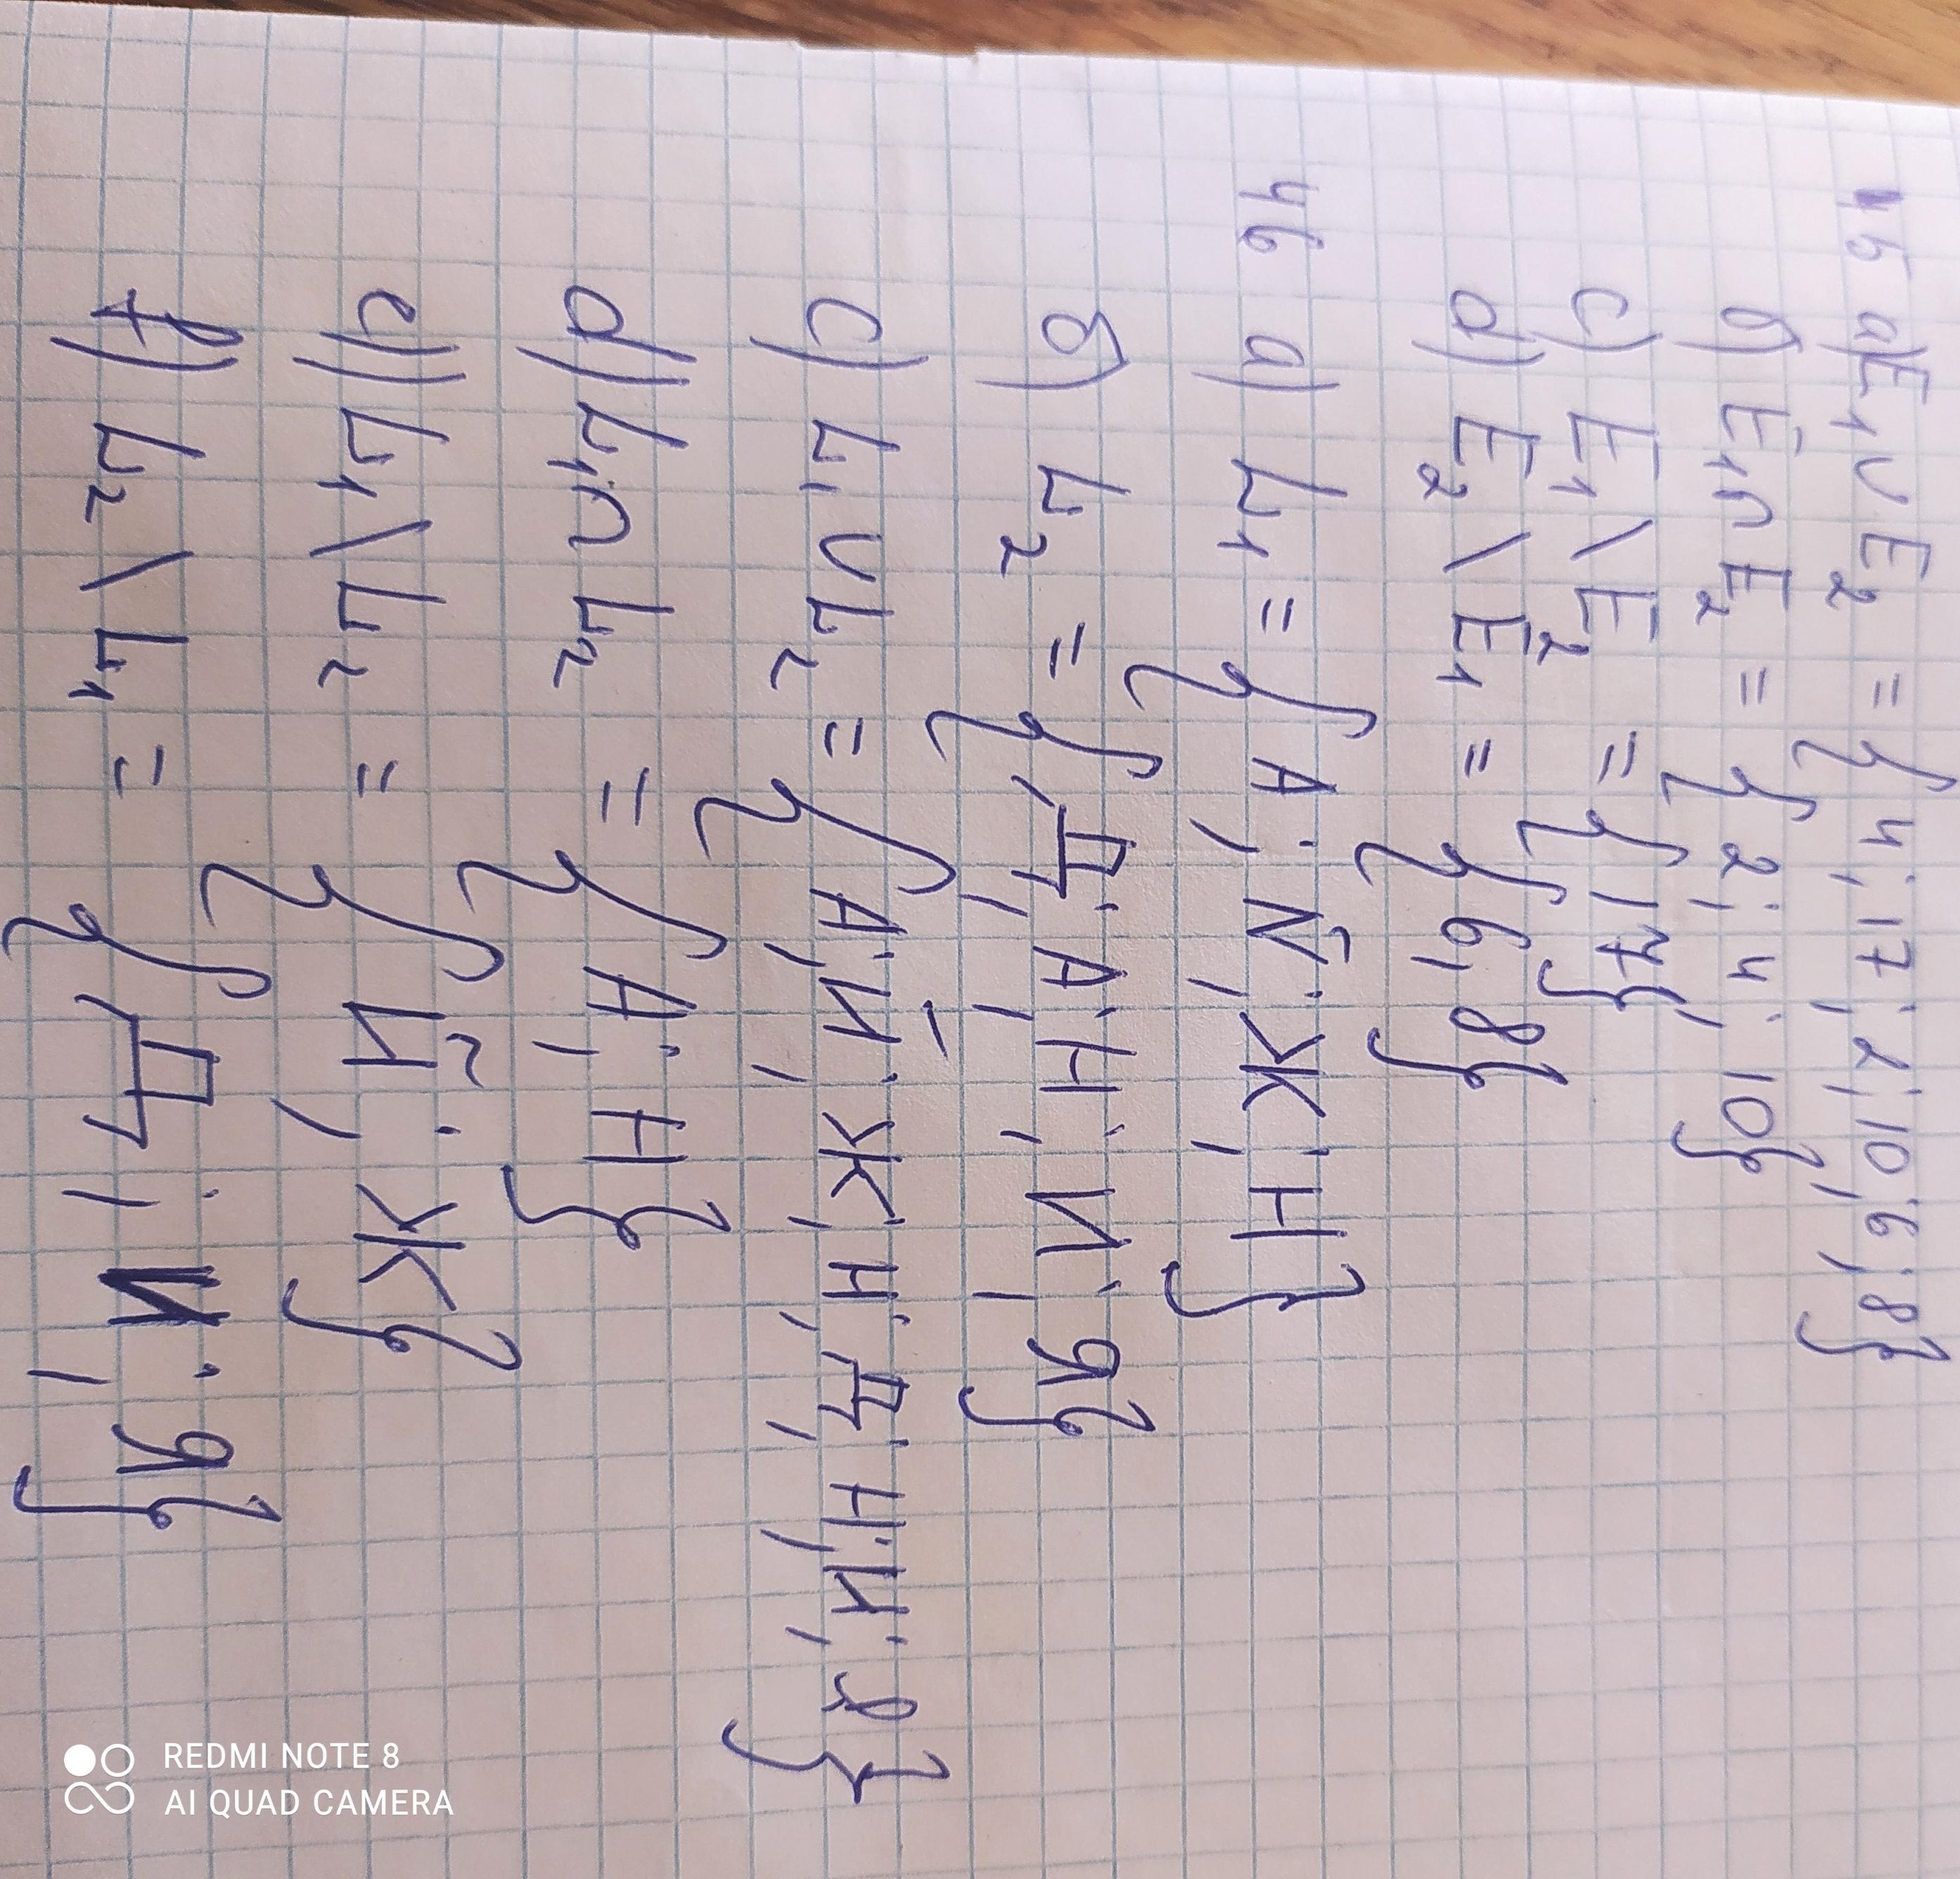 45 a) E1 ∪ E2 = {4; 17; 2; 10; 6; 8}
б) E1 ∩ E2 = {2; 4; 10}
c) E1 \ E2 = {17}
d) E2 \ E1 = {6; 8}
46 a) L1 = {А; Й; Ж; Н}
б) L2 = {Д; А; Н; И; Я}
c) L1 ∪ L2 = {А; Й; Ж; Н; Д; Н; И; Я}
d) L1 ∩ L2 = {А; Н}
e) L1 \ L2 = {Й; Ж}
f) L2 \ L1 = {Д; И; Я}
REDMI NOTE 8
AI QUAD CAMERA